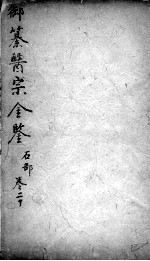 御纂醫宗金鑒
石部
卷二十